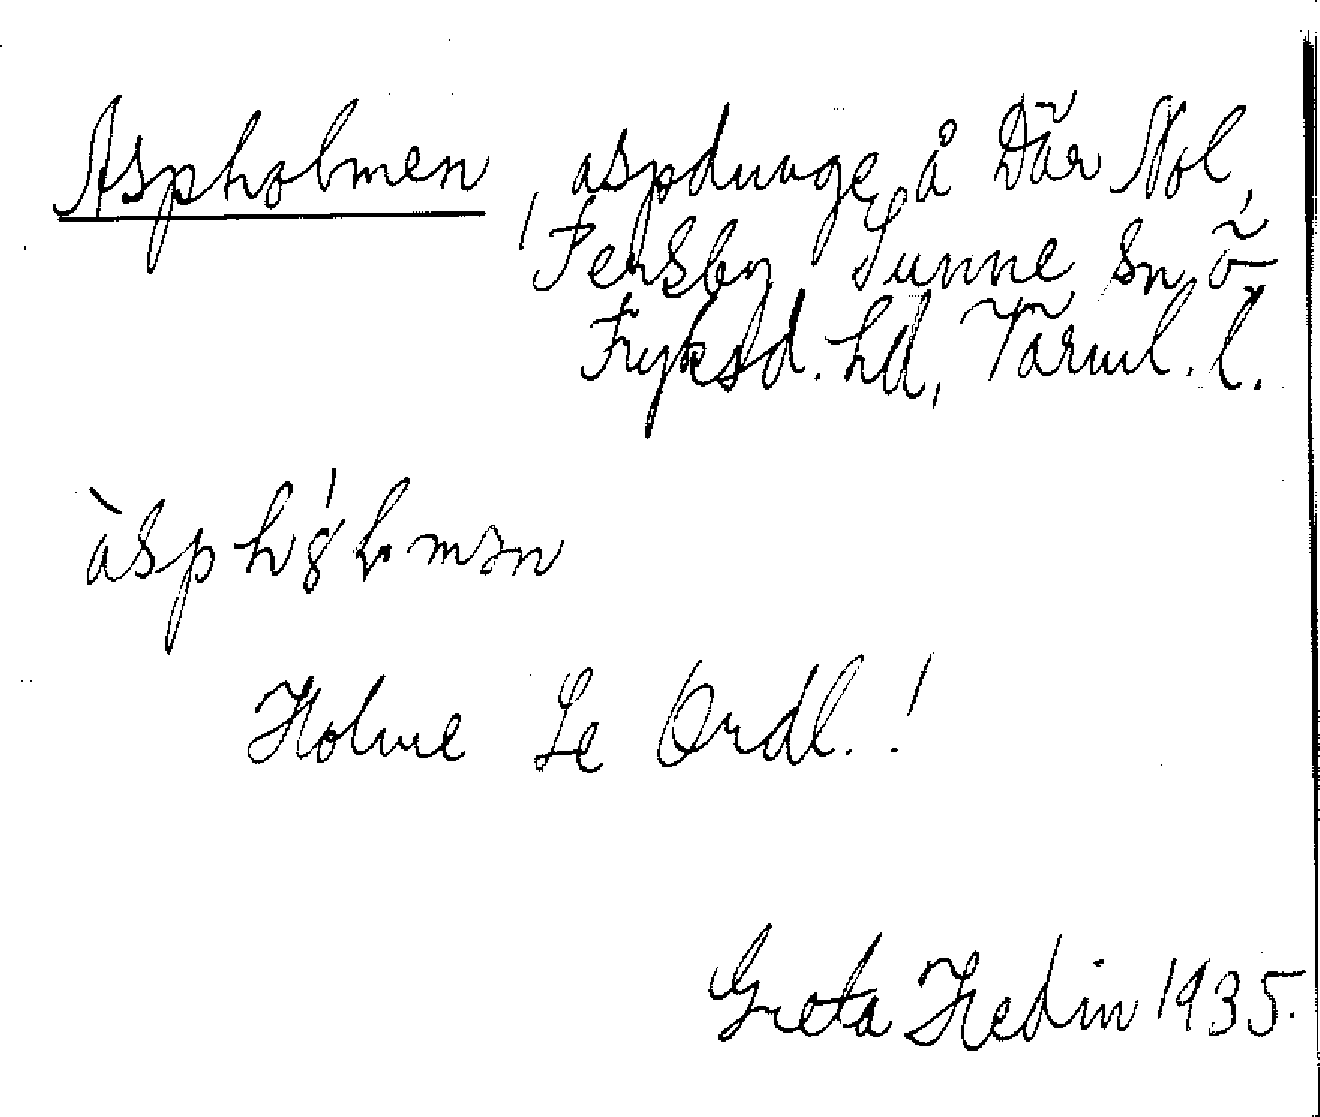 Aspholmen, aspdunge å Där Nol,
Fensby Sunne sn o
Fryksd. hd, Värml. l.
àsphólmən
Holme Se Ordl.!
Greta Hedin 1935.